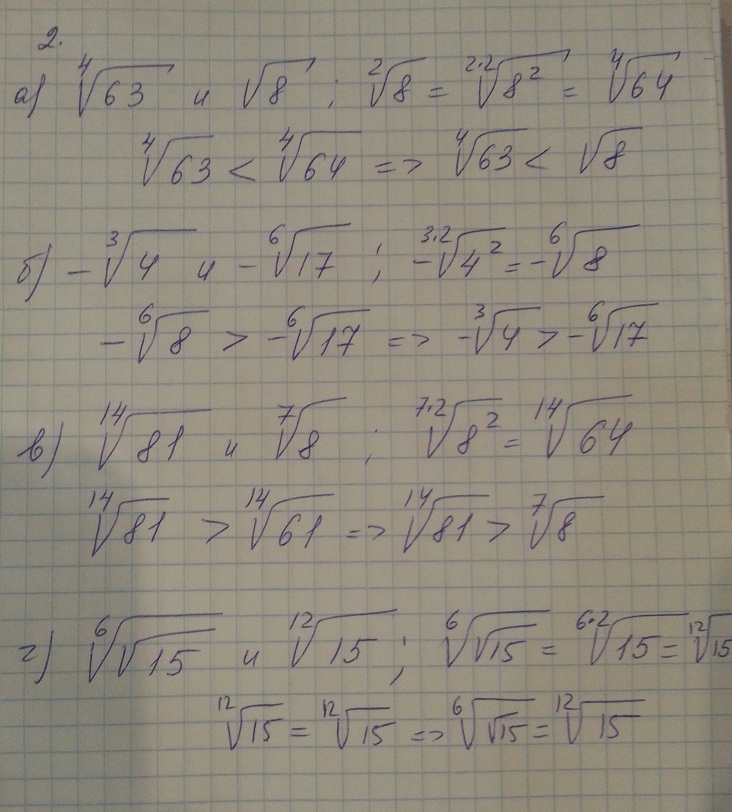 2.
а) ⁴√63 и √8 ; ²√8 = ²·²√8² = ⁴√64
⁴√63 < ⁴√64 => ⁴√63 < √8
б) -³√4 и -⁶√17 ; -³·²√4² = -⁶√8
-⁶√8 > -⁶√17 => -³√4 > -⁶√17
в) ¹⁴√81 и ⁷√8 ; ⁷·²√8² = ¹⁴√64
¹⁴√81 > ¹⁴√61 => ¹⁴√81 > ⁷√8
г) ⁶√√15 и ¹²√15 ; ⁶√√15 = ⁶·²√15 = ¹²√15
¹²√15 = ¹²√15 => ⁶√√15 = ¹²√15